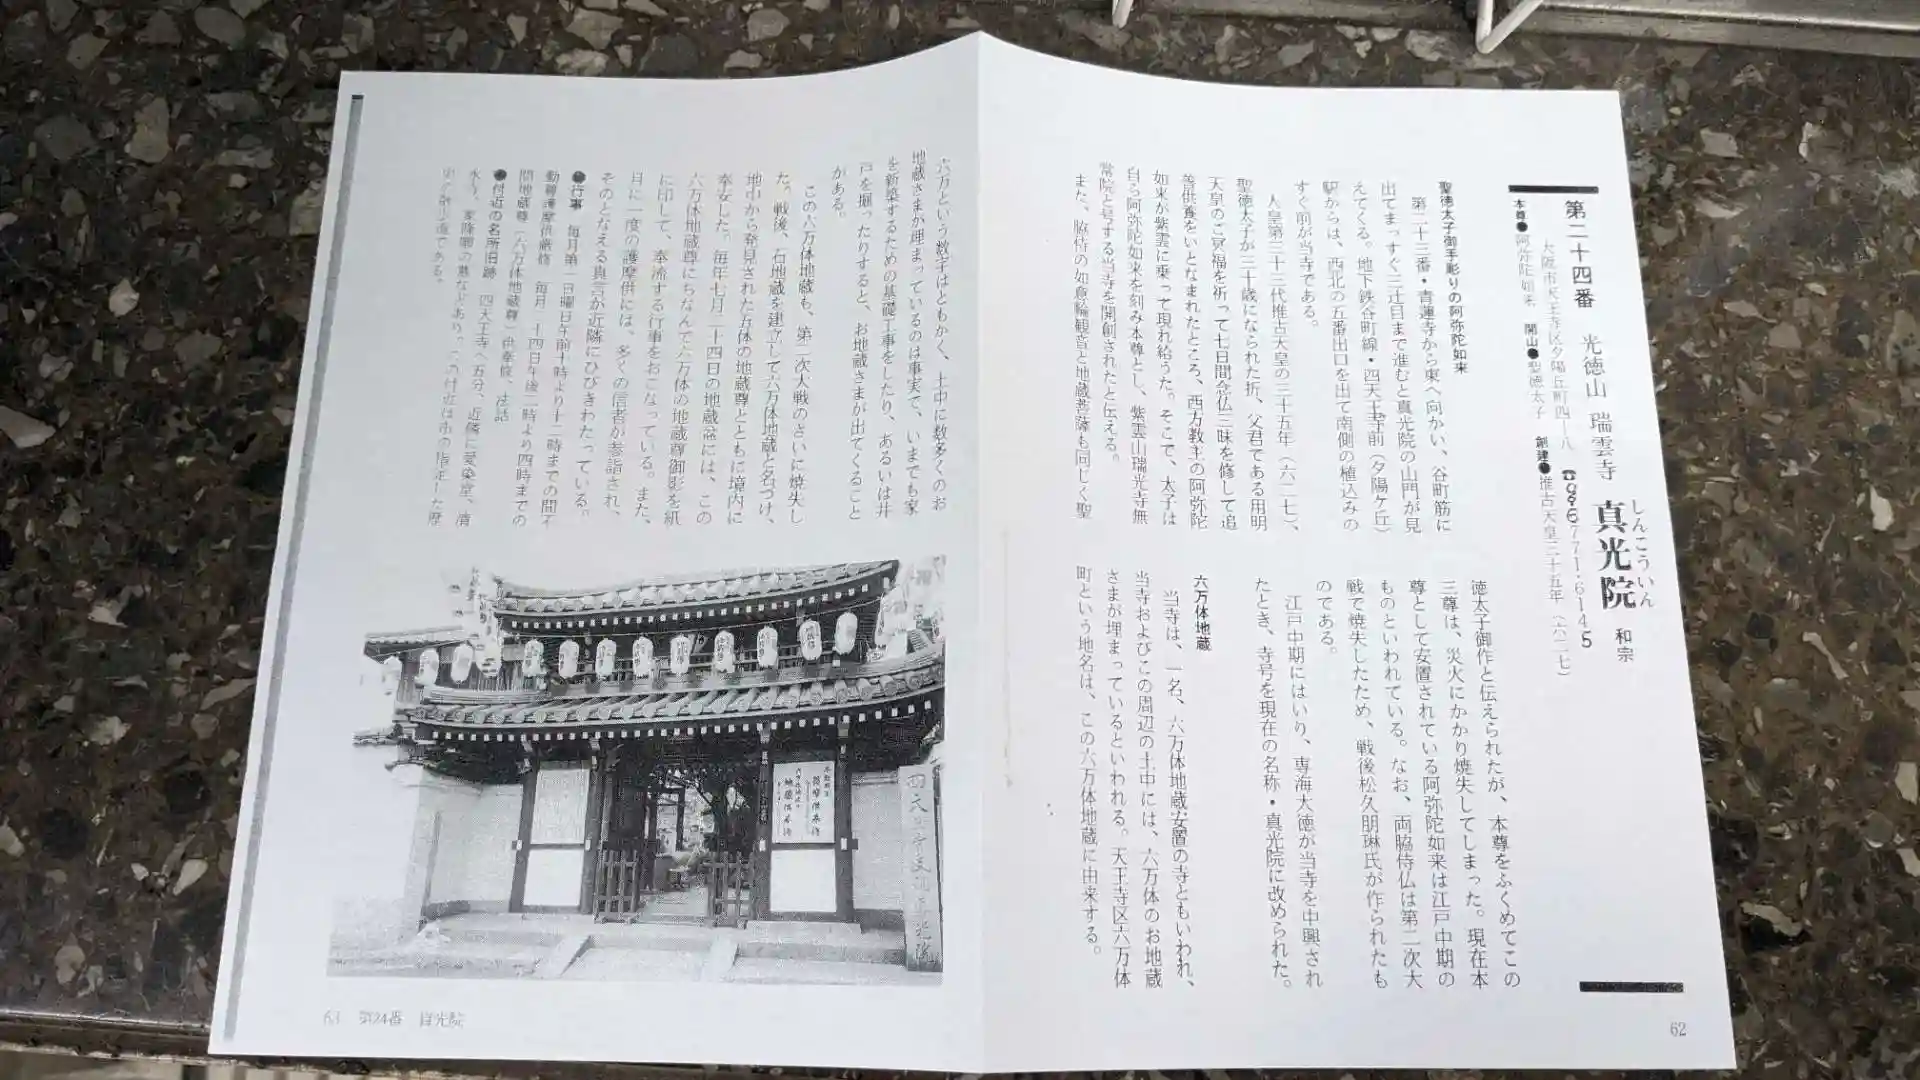 第二十四番 光徳山 瑞雲寺 真光院 和宗
しんこういん
大阪市天王寺区夕陽丘町四-八 ☎06 6771・6145
本尊●阿弥陀如来 開山●聖徳太子 創建●推古天皇三十五年(六二七)
聖徳太子御手彫りの阿弥陀如来
第二十三番・青蓮寺から東へ向かい、谷町筋に
出てまっすぐ三辻目まで進むと真光院の山門が見
えてくる。地下鉄谷町線・四天王寺前(夕陽ケ丘)
駅からは、西北の五番出口を出て南側の植込みの
すぐ前が当寺である。
人皇第三十三代推古天皇の三十五年(六二七)、
聖徳太子が三十歳になられた折、父君である用明
天皇のご冥福を祈って七日間念仏三昧を修して追
善供養をいとなまれたところ、西方教主の阿弥陀
如来が紫雲に乗って現れ給うた。そこで、太子は
自ら阿弥陀如来を刻み本尊とし、紫雲山瑞光寺無
常院と号する当寺を開創されたと伝える。
また、脇侍の如意輪観音と地蔵菩薩も同じく聖
徳太子御作と伝えられたが、本尊をふくめてこの
三尊は、災火にかかり焼失してしまった。現在本
尊として安置されている阿弥陀如来は江戸中期の
ものといわれている。なお、両脇侍仏は第二次大
戦で焼失したため、戦後松久朋琳氏が作られたも
のである。
江戸中期にはいり、専海大徳が当寺を中興され
たとき、寺号を現在の名称・真光院に改められた。
六万体地蔵
当寺は、一名、六万体地蔵安置の寺ともいわれ、
当寺およびこの周辺の土中には、六万体のお地蔵
さまが埋まっているといわれる。天王寺区六万体
町という地名は、この六万体地蔵に由来する。
62
六万という数字はともかく、土中に数多くのお
地蔵さまが埋まっているのは事実で、いまでも家
を新築するための基礎工事をしたり、あるいは井
戸を掘ったりすると、お地蔵さまが出てくること
がある。
この六万体地蔵も、第二次大戦のさいに焼失し
た。戦後、石地蔵を建立して六万体地蔵と名づけ、
地中から発見された五体の地蔵尊とともに境内に
奉安した。毎年七月二十四日の地蔵盆には、この
六万体地蔵尊にちなんで六万体の地蔵尊御影を紙
に印して、奉流する行事をおこなっている。また、
月に一度の護摩供には、多くの信者が参詣され、
そのとなえる真言が近隣にひびきわたっている。
●行事 毎月第一日曜日午前十時より十二時までの間不
動尊護摩供厳修 毎月二十四日午後二時より四時までの
間地蔵尊(六万体地蔵尊)供奉修、法話
●付近の名所旧跡 四天王寺へ五分、近隣に愛染堂、清
水寺、家隆卿の墓などあり。この付近は市の指定した歴
史の散歩道である。
63 第24番 真光院